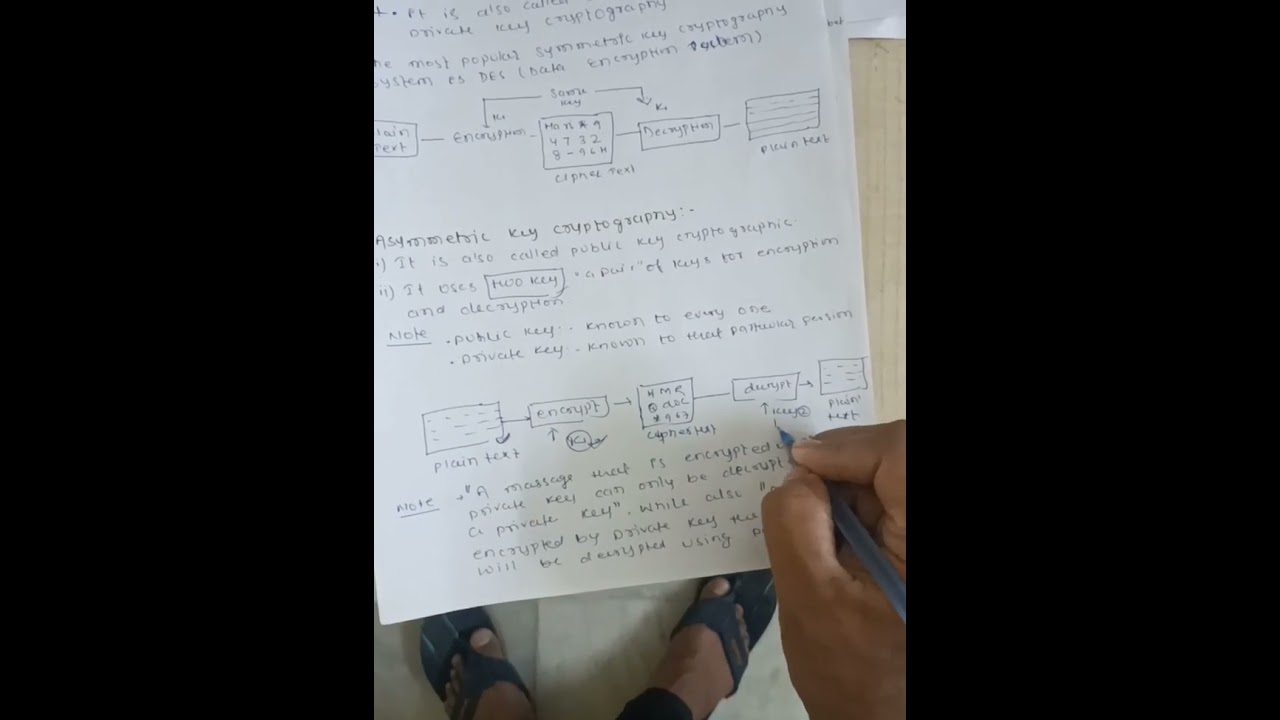 It is also called
private key cryptography
he most popular symmetric key cryptography
system es DES (Data Encryption
Same
key
K1
K1
lain
Text
Encryption
Han * 9
4 7 3 2
8 - 9 6 H
Decryption
cipher Text
plain text
Asymmetric key cryptography:-
i) It is also called public key cryptographic.
ii) It uses two key "a pair" of keys for encryption
and decryption
Note
. public key:- known to every one
. private key:- known to that particular person
encrypt
decrypt
K1
key 2
plain text
cipher text
plain
text
Note → "A massage that is encrypted
private key can only be decrypt
a private key". While also "
encrypted by private key
will be decrypted using